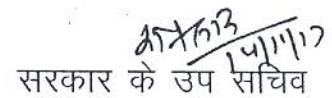 14/11/17
सरकार के उप सचिव